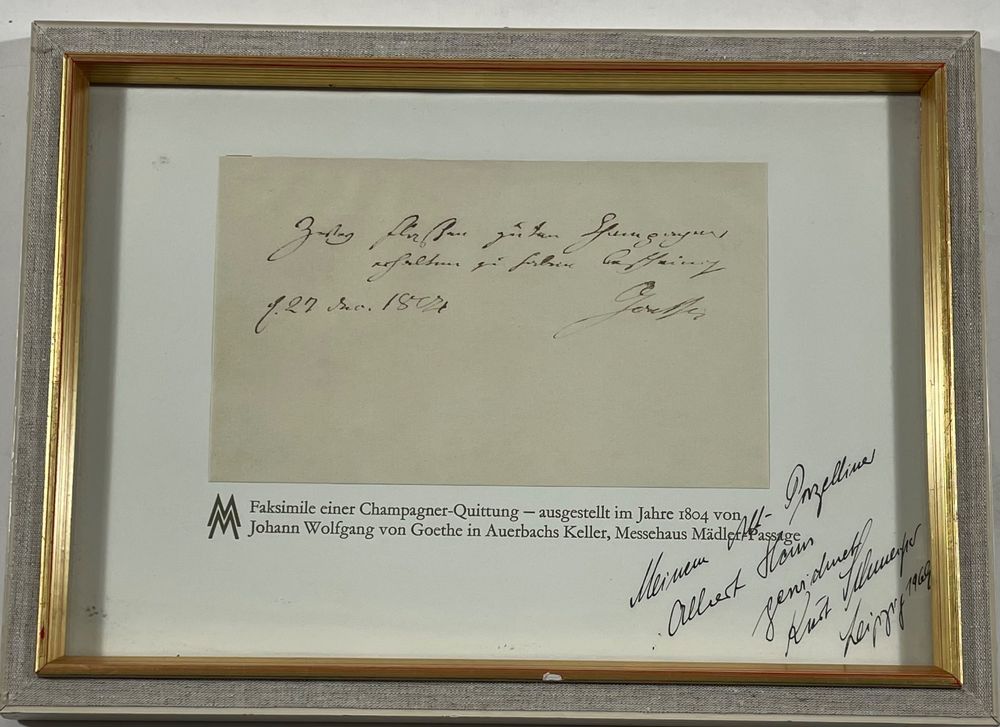 flaschen guten Champagner
erhalten zu haben bescheinigt
d. 27 Dec. 1804
Goethe
MM
Faksimile einer Champagner-Quittung – ausgestellt im Jahre 1804 von
Johann Wolfgang von Goethe in Auerbachs Keller, Messehaus Mädler-Passage
Meinem Alt- Porzelliner
Albert
gewidmet
Kurt
Leipzig 1969